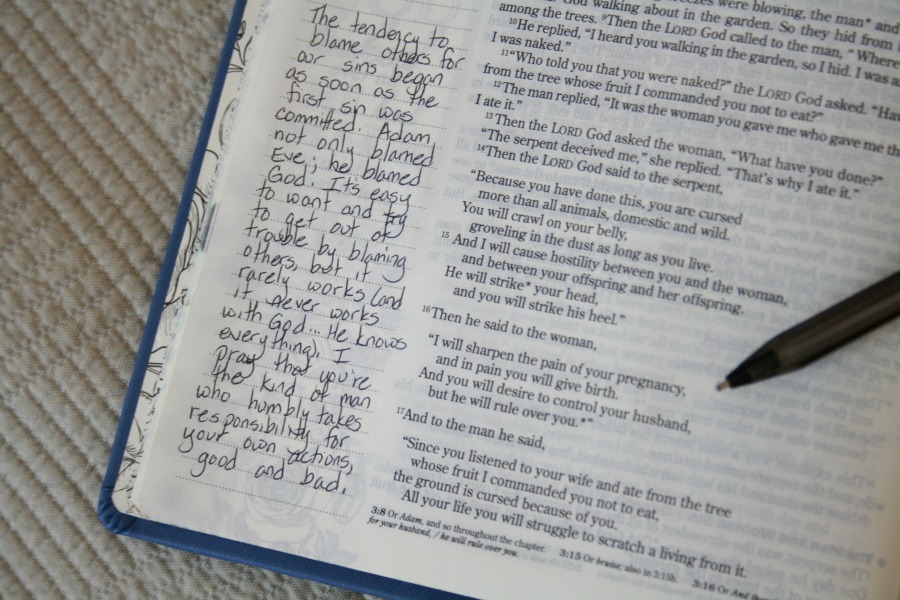 The tendency to
blame others for
our sins began
as soon as the
first sin was
committed. Adam
not only blamed
Eve; he blamed
God. It's easy
to want and try
to get out of
trouble by blaming
others, but it
rarely works (and
it never works
with God... He knows
everything). I
pray that you're
the kind of man
who humbly takes
responsibility for
your own actions,
good and bad.
were blowing, the man* and
God walking about in the garden. So they hid from
among the trees. 9Then the LORD God called to the man, "Where
10He replied, "I heard you walking in the garden, so I hid. I was a
I was naked."
11"Who told you that you were naked?" the LORD God asked. "Hav
from the tree whose fruit I commanded you not to eat?"
12The man replied, "It was the woman you gave me who gave me th
I ate it."
13Then the LORD God asked the woman, "What have you done?"
"The serpent deceived me," she replied. "That's why I ate it."
14Then the LORD God said to the serpent,
"Because you have done this, you are cursed
more than all animals, domestic and wild.
You will crawl on your belly,
groveling in the dust as long as you live.
15 And I will cause hostility between you and the woman,
and between your offspring and her offspring.
He will strike* your head,
and you will strike his heel."
16Then he said to the woman,
"I will sharpen the pain of your pregnancy,
and in pain you will give birth.
And you will desire to control your husband,
but he will rule over you.*"
17And to the man he said,
"Since you listened to your wife and ate from the tree
whose fruit I commanded you not to eat,
the ground is cursed because of you.
All your life you will struggle to scratch a living from it.
3:8 Or Adam, and so throughout the chapter. 3:15 Or bruise; also in 3:15b. 3:16 Or And
for your husband, / he will rule over you.